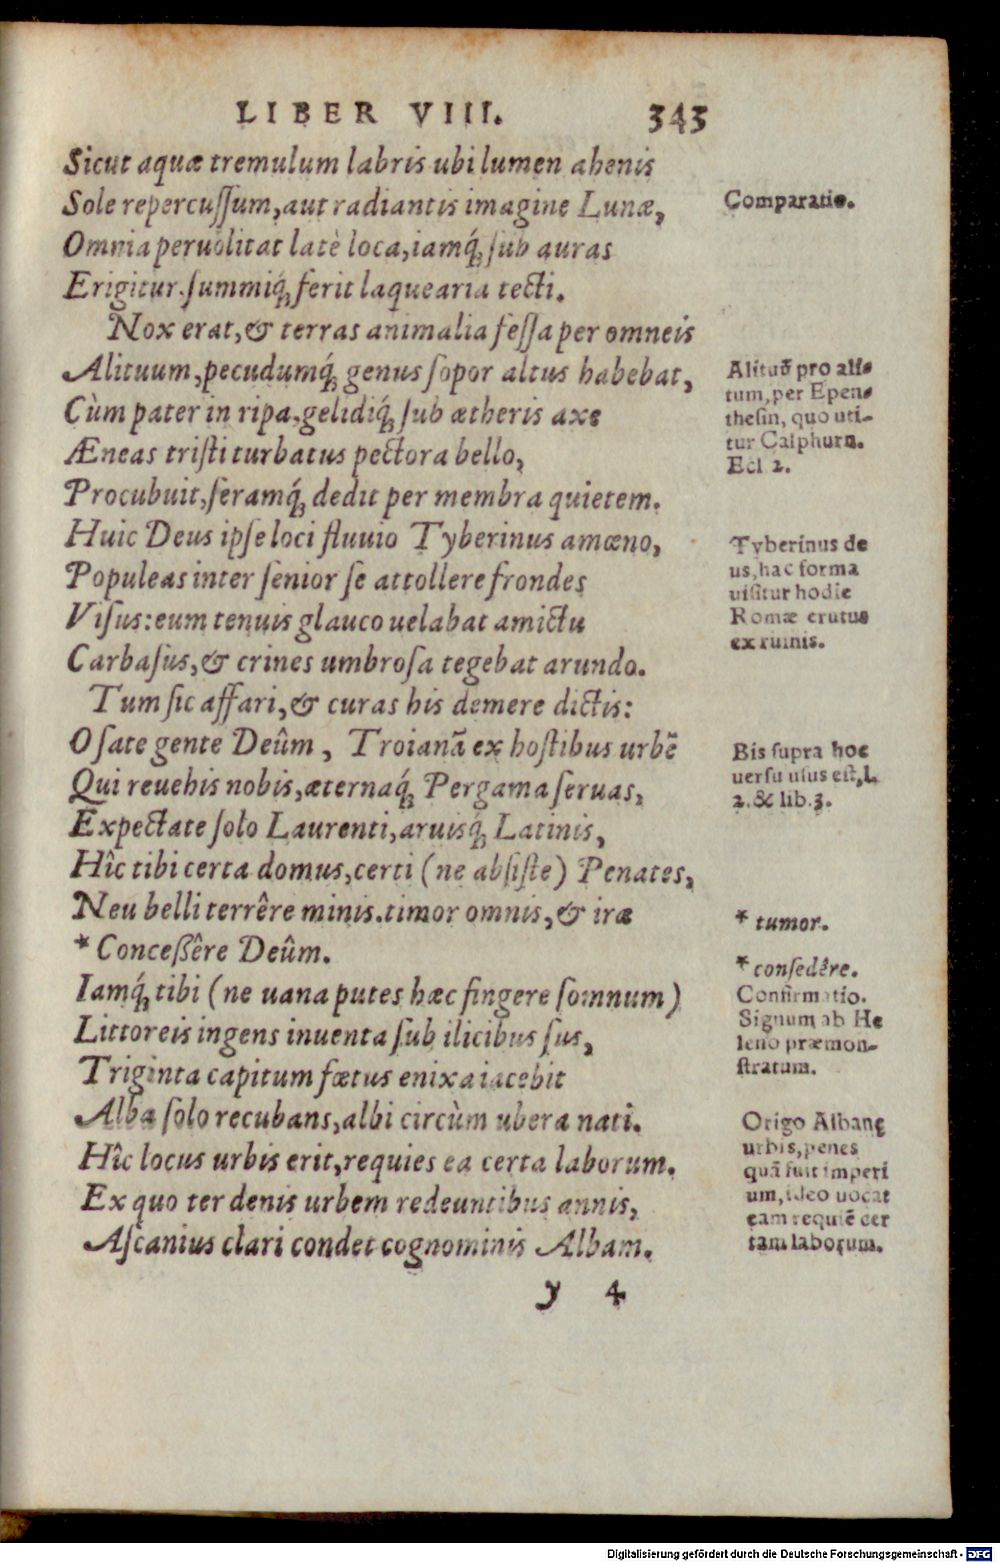 LIBER VIII. 343
Sicut aquæ tremulum labris ubi lumen ahenis
Sole repercuſſum, aut radiantis imagine Lunæ,
Omnia peruolitat latè loca, iamq́; ſub auras
Erigitur. ſummiq́; ferit laquearia tecti.
Nox erat, & terras animalia feſſa per omneis
Alituum, pecudumq́; genus ſopor altus habebat,
Cùm pater in ripa, gelidiq́; ſub ætheris axe
Æneas triſti turbatus pectora bello,
Procubuit, ſeramq́; dedit per membra quietem.
Huic Deus ipſe loci fluuio Tyberinus amœno,
Populeas inter ſenior ſe attollere frondes
Viſus: eum tenuis glauco uelabat amictu
Carbaſus, & crines umbroſa tegebat arundo.
Tum ſic affari, & curas his demere dictis:
O ſate gente Deûm, Troianã ex hoſtibus urbẽ
Qui reuehis nobis, æternaq́; Pergama ſeruas,
Expectate ſolo Laurenti, aruisq́; Latinis,
Hîc tibi certa domus, certi (ne abſiſte) Penates,
Neu belli terrêre minis. timor omnis, & iræ
* Conceßêre Deûm.
Iamq́; tibi (ne uana putes hæc fingere ſomnum)
Littoreis ingens inuenta ſub ilicibus ſus,
Triginta capitum fœtus enixa iacebit
Alba ſolo recubans, albi circùm ubera nati.
Hîc locus urbis erit, requies ea certa laborum.
Ex quo ter denis urbem redeuntibus annis,
Aſcanius clari condet cognominis Albam.
y 4
Comparatio.
Alituũ pro ali-
tum, per Epen-
theſin, quo uti-
tur Calphurn.
Ecl 2.
Tyberinus de
us, hac forma
uiſitur hodie
Romæ erutus
ex ruinis.
Bis ſupra hoc
uerſu uſus eſt, L
2. & lib. 3.
* tumor.
* conſedêre.
Confirmatio.
Signum ab He
leno præmon-
ſtratum.
Origo Albanę
urbis, penes
quã fuit imperi
um, ideo uocat
eam requiẽ cer
tam laborum.
Digitalisierung gefördert durch die Deutsche Forschungsgemeinschaft - DFG